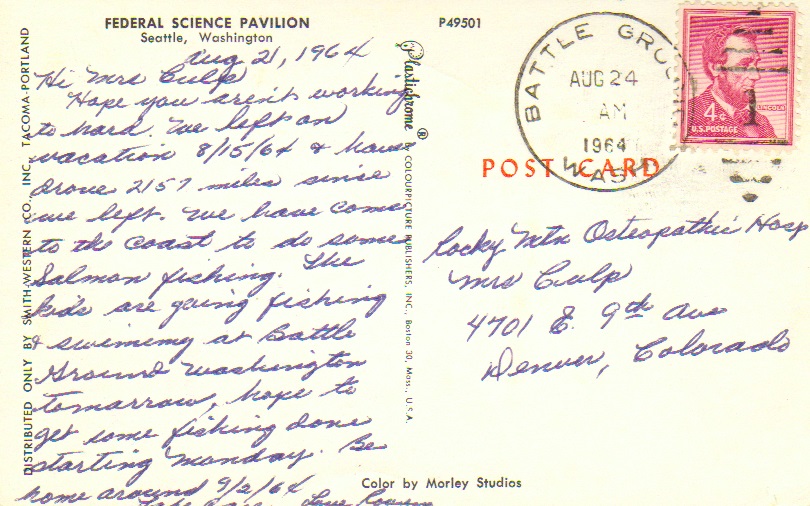 FEDERAL SCIENCE PAVILION
Seattle, Washington
P49501
Aug 21, 1964
Hi Mrs Culp
Hope you aren't working
to hard. We left on
vacation 8/15/64 & have
drove 2157 miles since
we left. We have come
to the coast to do some
Salmon fishing. The
kids are going fishing
& swimimg at Battle
Ground Washington
tomorrow, hope to
get some fishing done
starting Monday. Be
home around 9/2/64
Take care. Love
DISTRIBUTED ONLY BY SMITH-WESTERN CO., INC. TACOMA-PORTLAND
Plastichrome ® BY COLOURPICTURE PUBLISHERS, INC., Boston 30, Mass., U.S.A.
BATTLE GROUND
AUG 24
AM
1964
WASH
4¢
LINCOLN
U.S. POSTAGE
POST CARD
Rocky Mtn Osteopathic Hosp
Mrs Culp
4701 E. 9th Ave
Denver, Colorado
Color by Morley Studios